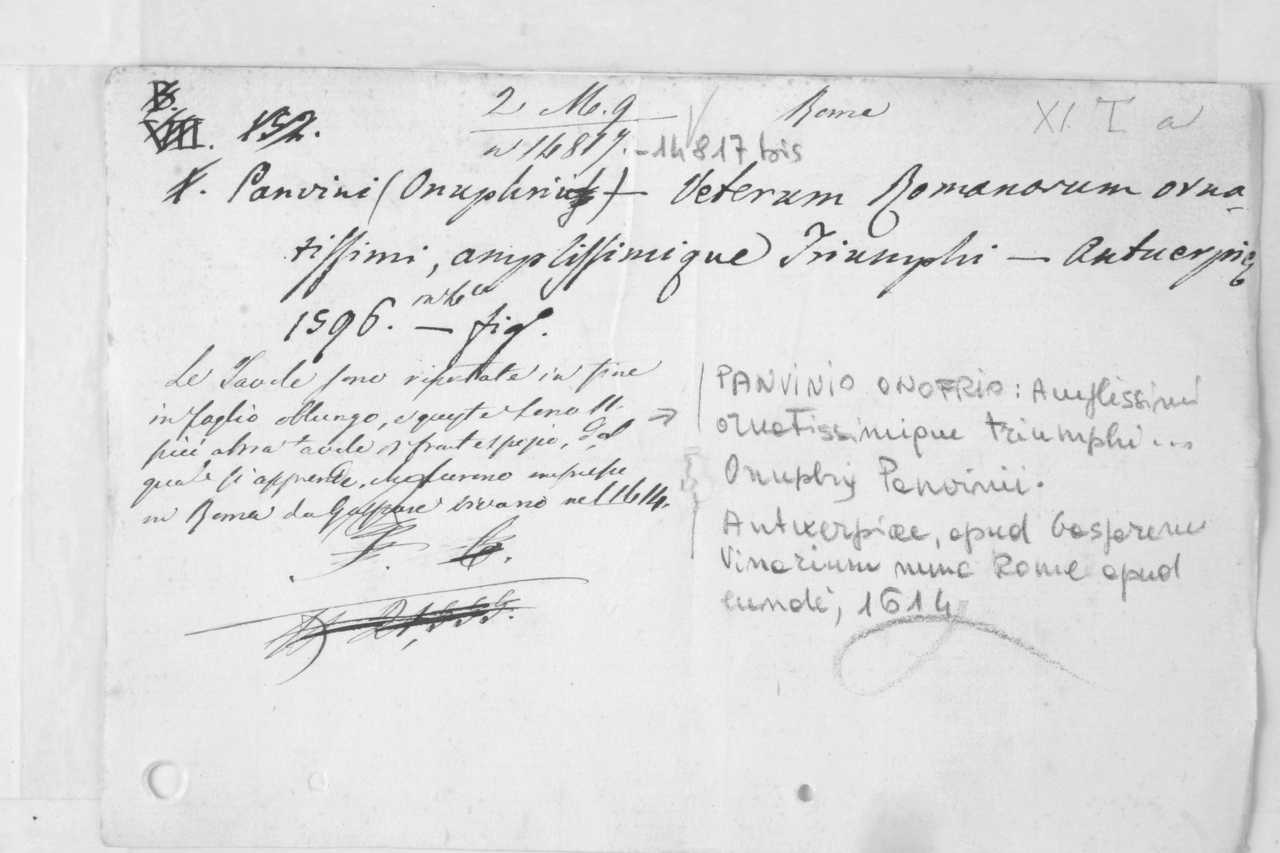 B.
VIII. 152.
2 M. 9
n 14817. - 14817 bis
Roma
XI. I a
X. Panvini (Onuphrius) — Veterum Romanorum orna-
tissimi, amplissimique Triumphi — Antuerpię
1596. — in 4to fig.
Le Tavole sono riportate in fine
in foglio oblungo, e queste sono 11.
più altra tavola di frontespizio, dal
quale si apprende, che furono impresse
in Roma da Gaspare Vivario nel 1614.
F. C.
21,555.
PANVINIO ONOFRIO: Amplissimi
ornatissimique triumphi...
Onuphrij Panvinii.
Antuerpiae, apud Gasparem
Vivarium nunc Rome apud
eundē, 1614